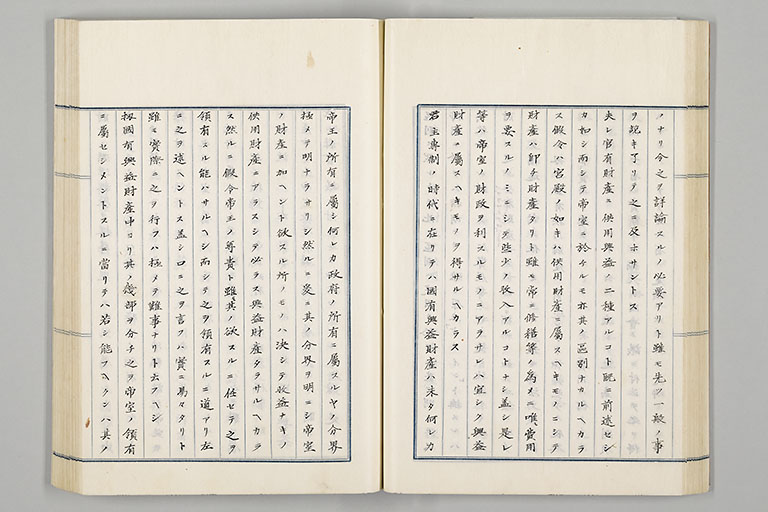 ノナリ今之ヲ詳論スルノ必要アリト雖モ先ツ一般ノ事
ヲ説キ了リテ之ニ及ホサントス
夫レ官有財産ニ供用興益ノ二種アルコト既ニ前述セシ
カ如シ而シテ帝室ニ於テモ亦其ノ區別ナカルヘカラ
ス假令ハ宮殿ノ如キハ供用財産ニ屬スヘキモノニシテ
財産ハ即チ財産タリト雖モ常ニ修繕等ノ爲メニ唯費用
ヲ要スルノミニシテ些少ノ收入アルコトナシ蓋シ是レ
等ハ帝室ノ財政ヲ利スルモノニアラサレハ宜シク興益
財産ニ屬スヘキモノヲ得サルヘカラス
君主專制ノ時代ニ在リテハ國有興益財産ハ未タ何レカ
帝王ノ所有ニ屬シ何レカ政府ノ所有ニ屬スルヤノ分界
極メテ明ナラサリシ然ルニ爰ニ其ノ分界ヲ明ニシ帝室
ノ財産ニ加ヘント欲スル所ノモノハ決シテ收益ナキノ
供用財産ニアラスシテ必ラス興益財産タラサルヘカラ
ス然ルニ假令帝王ノ尊貴ト雖其ノ欲スルニ任セテ之ヲ
領有スル能ハサルヘシ而シテ之ヲ領有スルニ道アリ左
ニ之ヲ述ヘントス蓋シ口ニ之ヲ言フハ實ニ易々タリト
雖モ實際ニ之ヲ行フハ極メテ難事ナリト云フヘシ
扨國有興益財産中ヨリ其ノ幾部ヲ分チ之ヲ帝室ノ領有
ニ屬セシメントスルニ當リテハ若シ能フヘクンハ其ノ